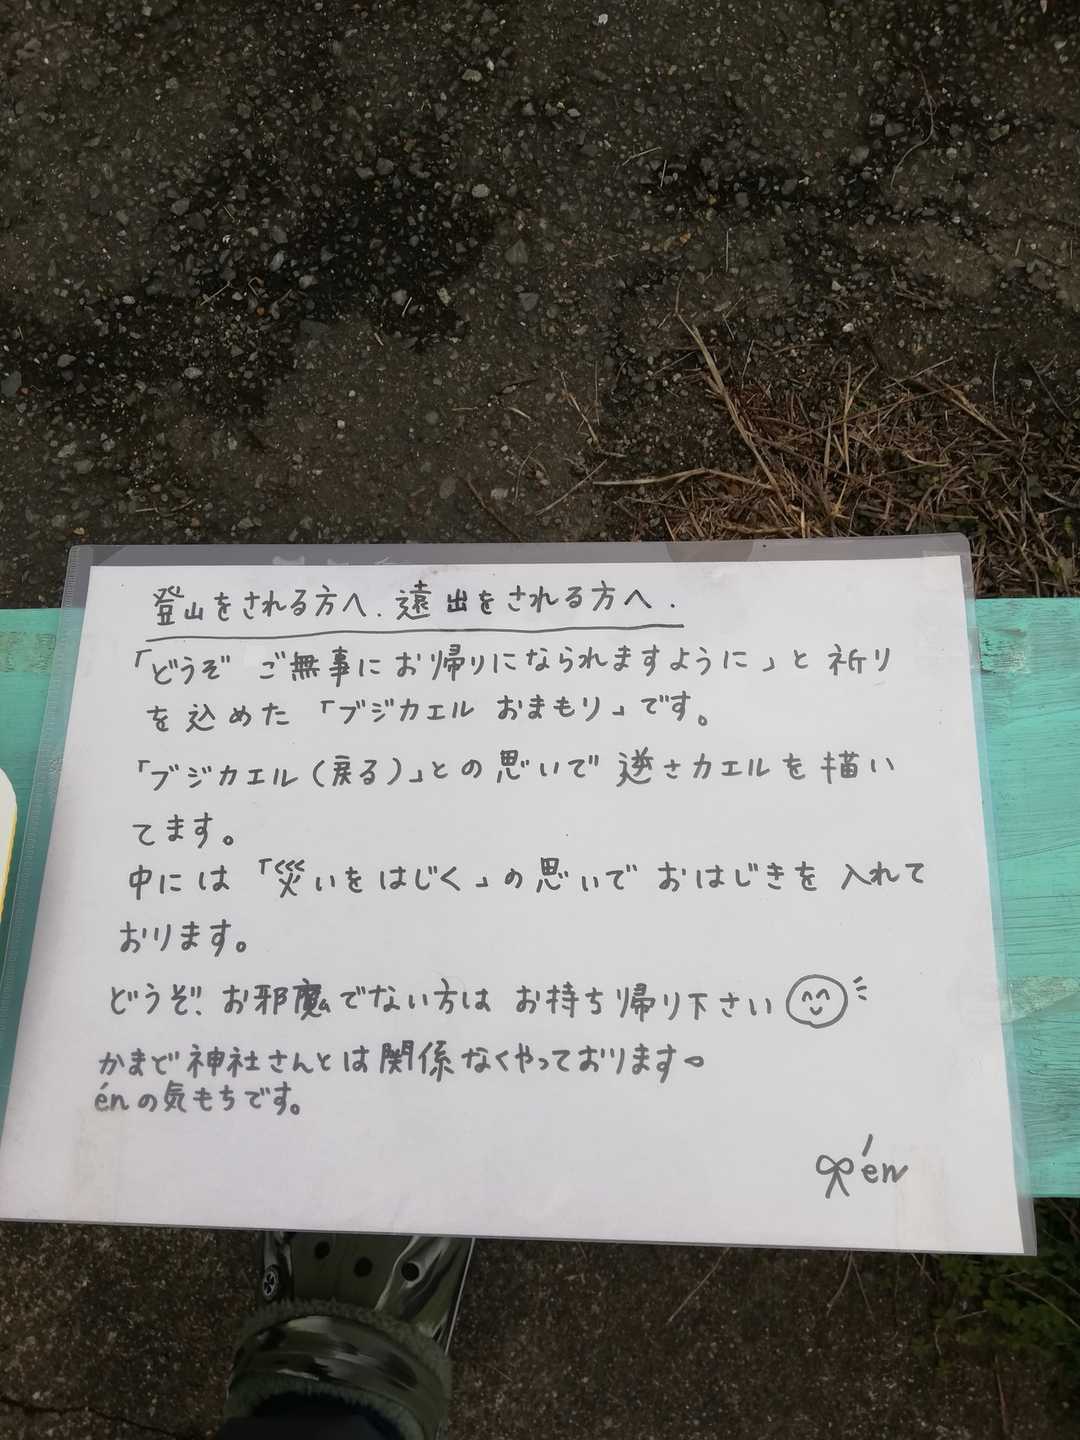 登山をされる方へ.遠出をされる方へ.
「どうぞ ご無事にお帰りになられますように」と祈り
を込めた「ブジカエル おまもり」です。
「ブジカエル(戻る)」との思いで 逆さカエルを描い
てます。
中には「災いをはじく」の思いで おはじきを入れて
おります。
どうぞ!お邪魔でない方は お持ち帰り下さい
かまど神社さんとは関係なくやっております。
énの気もちです。
én